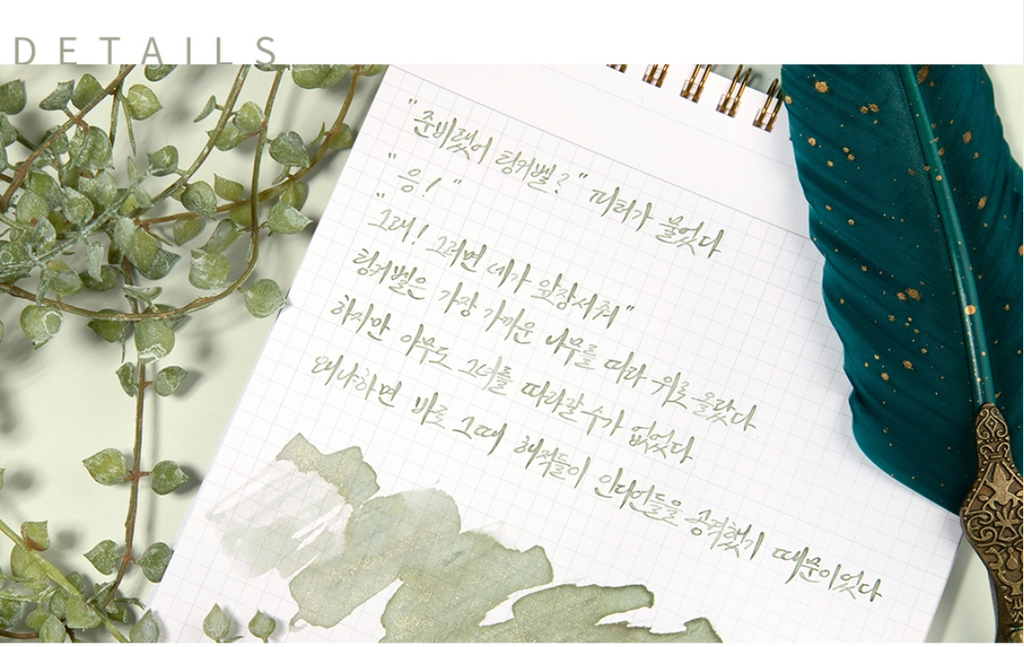 DETAILS
"준비됐어 팅커벨?" 피터가 물었다
"응!"
"그래! 그러면 네가 앞장서줘"
팅커벨은 가장 가까운 나무를 따라 위로 올랐다.
하지만 아무도 그녀를 따라갈 수가 없었다.
왜냐하면 바로 그때 해적들이 인디언들을 공격했기 때문이었다.